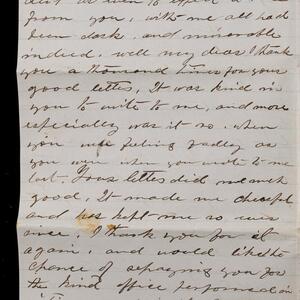 from you, with me all had
been dark, and miserable
indeed, well my dear I thank
you a thousand times for your
good letter, It was kind in
you to write to me, and more
especially was it so, when
you were feeling sadly as
you were when you wrote to me
last. Your letter did me much
good, It made me cheerful
and has kept me so ever
since, I thank you for it
again, and would like the
chance of repaying you for
the kind office performed in